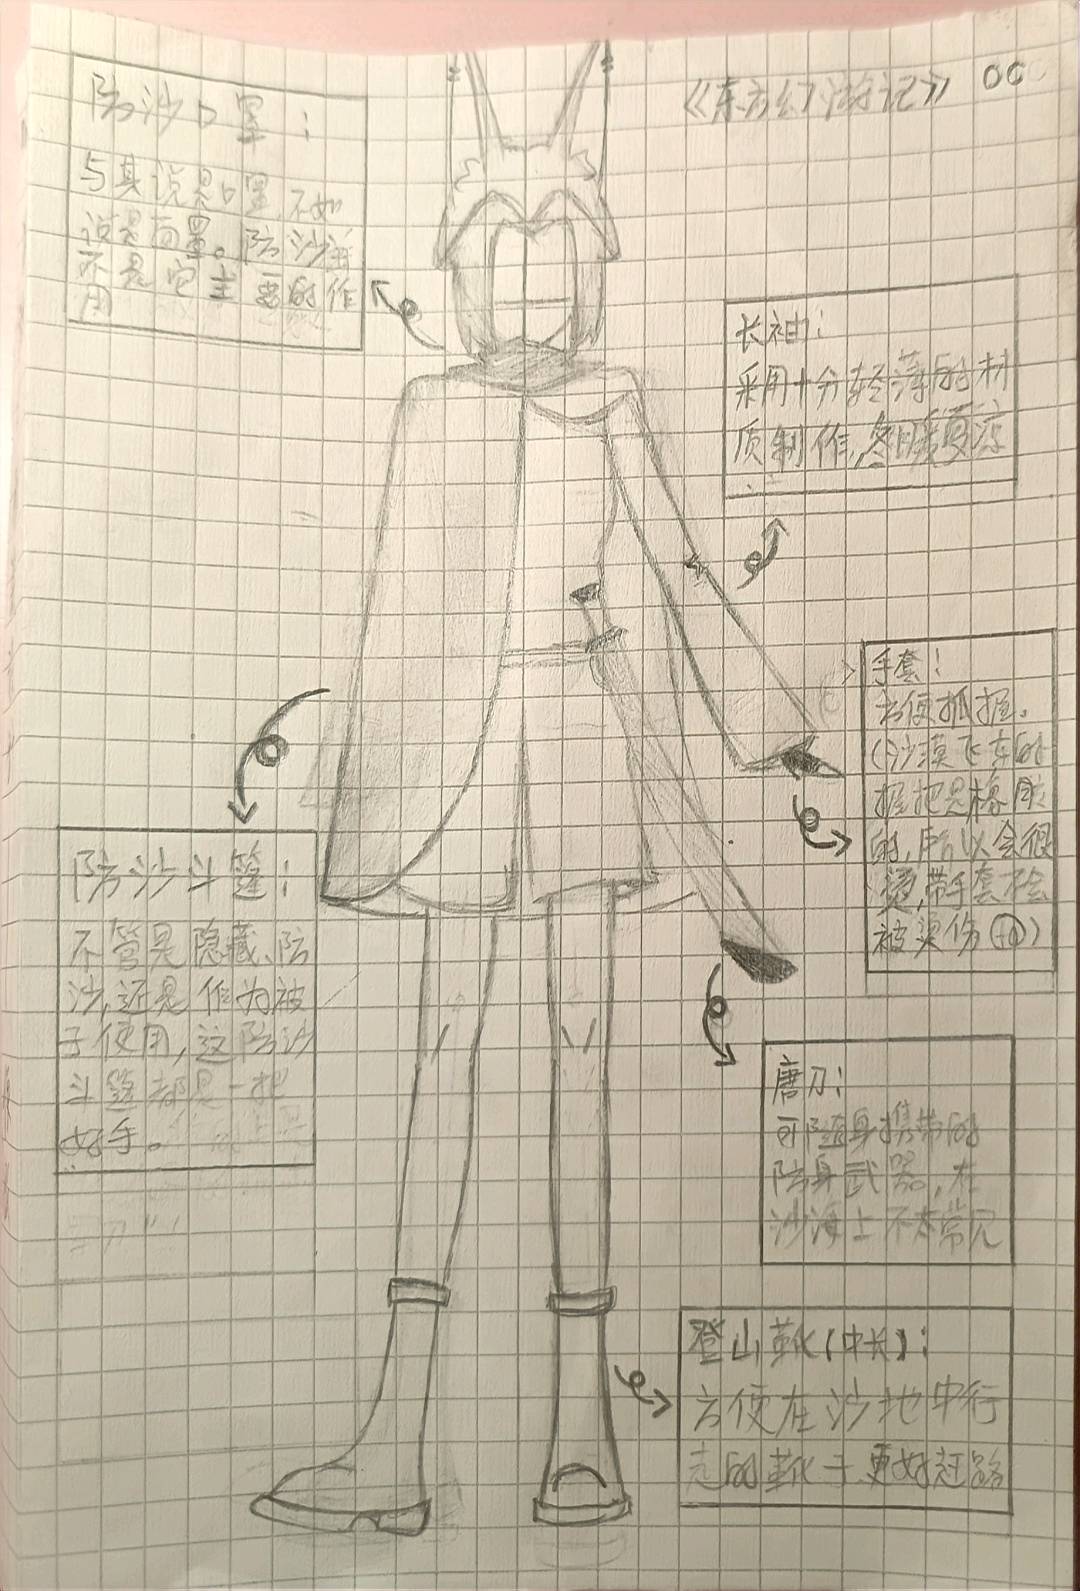 《东方幻游记》 OC
防沙口罩：
与其说是口罩,不如
说是面罩。防沙并
不是它主要的作
用
长袖：
采用十分轻薄的材
质制作,冬暖夏凉
手套：
方便抓握。
(沙漠飞车的
握把是橡胶
的,所以会很
烫,带手套不会
被烫伤
防沙斗篷：
不管是隐藏、防
沙,还是作为被
子使用,这防沙
斗篷都是一把
好手。
唐刀：
可随身携带的
防身武器,在
沙海上不太常见
登山靴(中长)：
方便在沙地中行
走的靴子,更好赶路